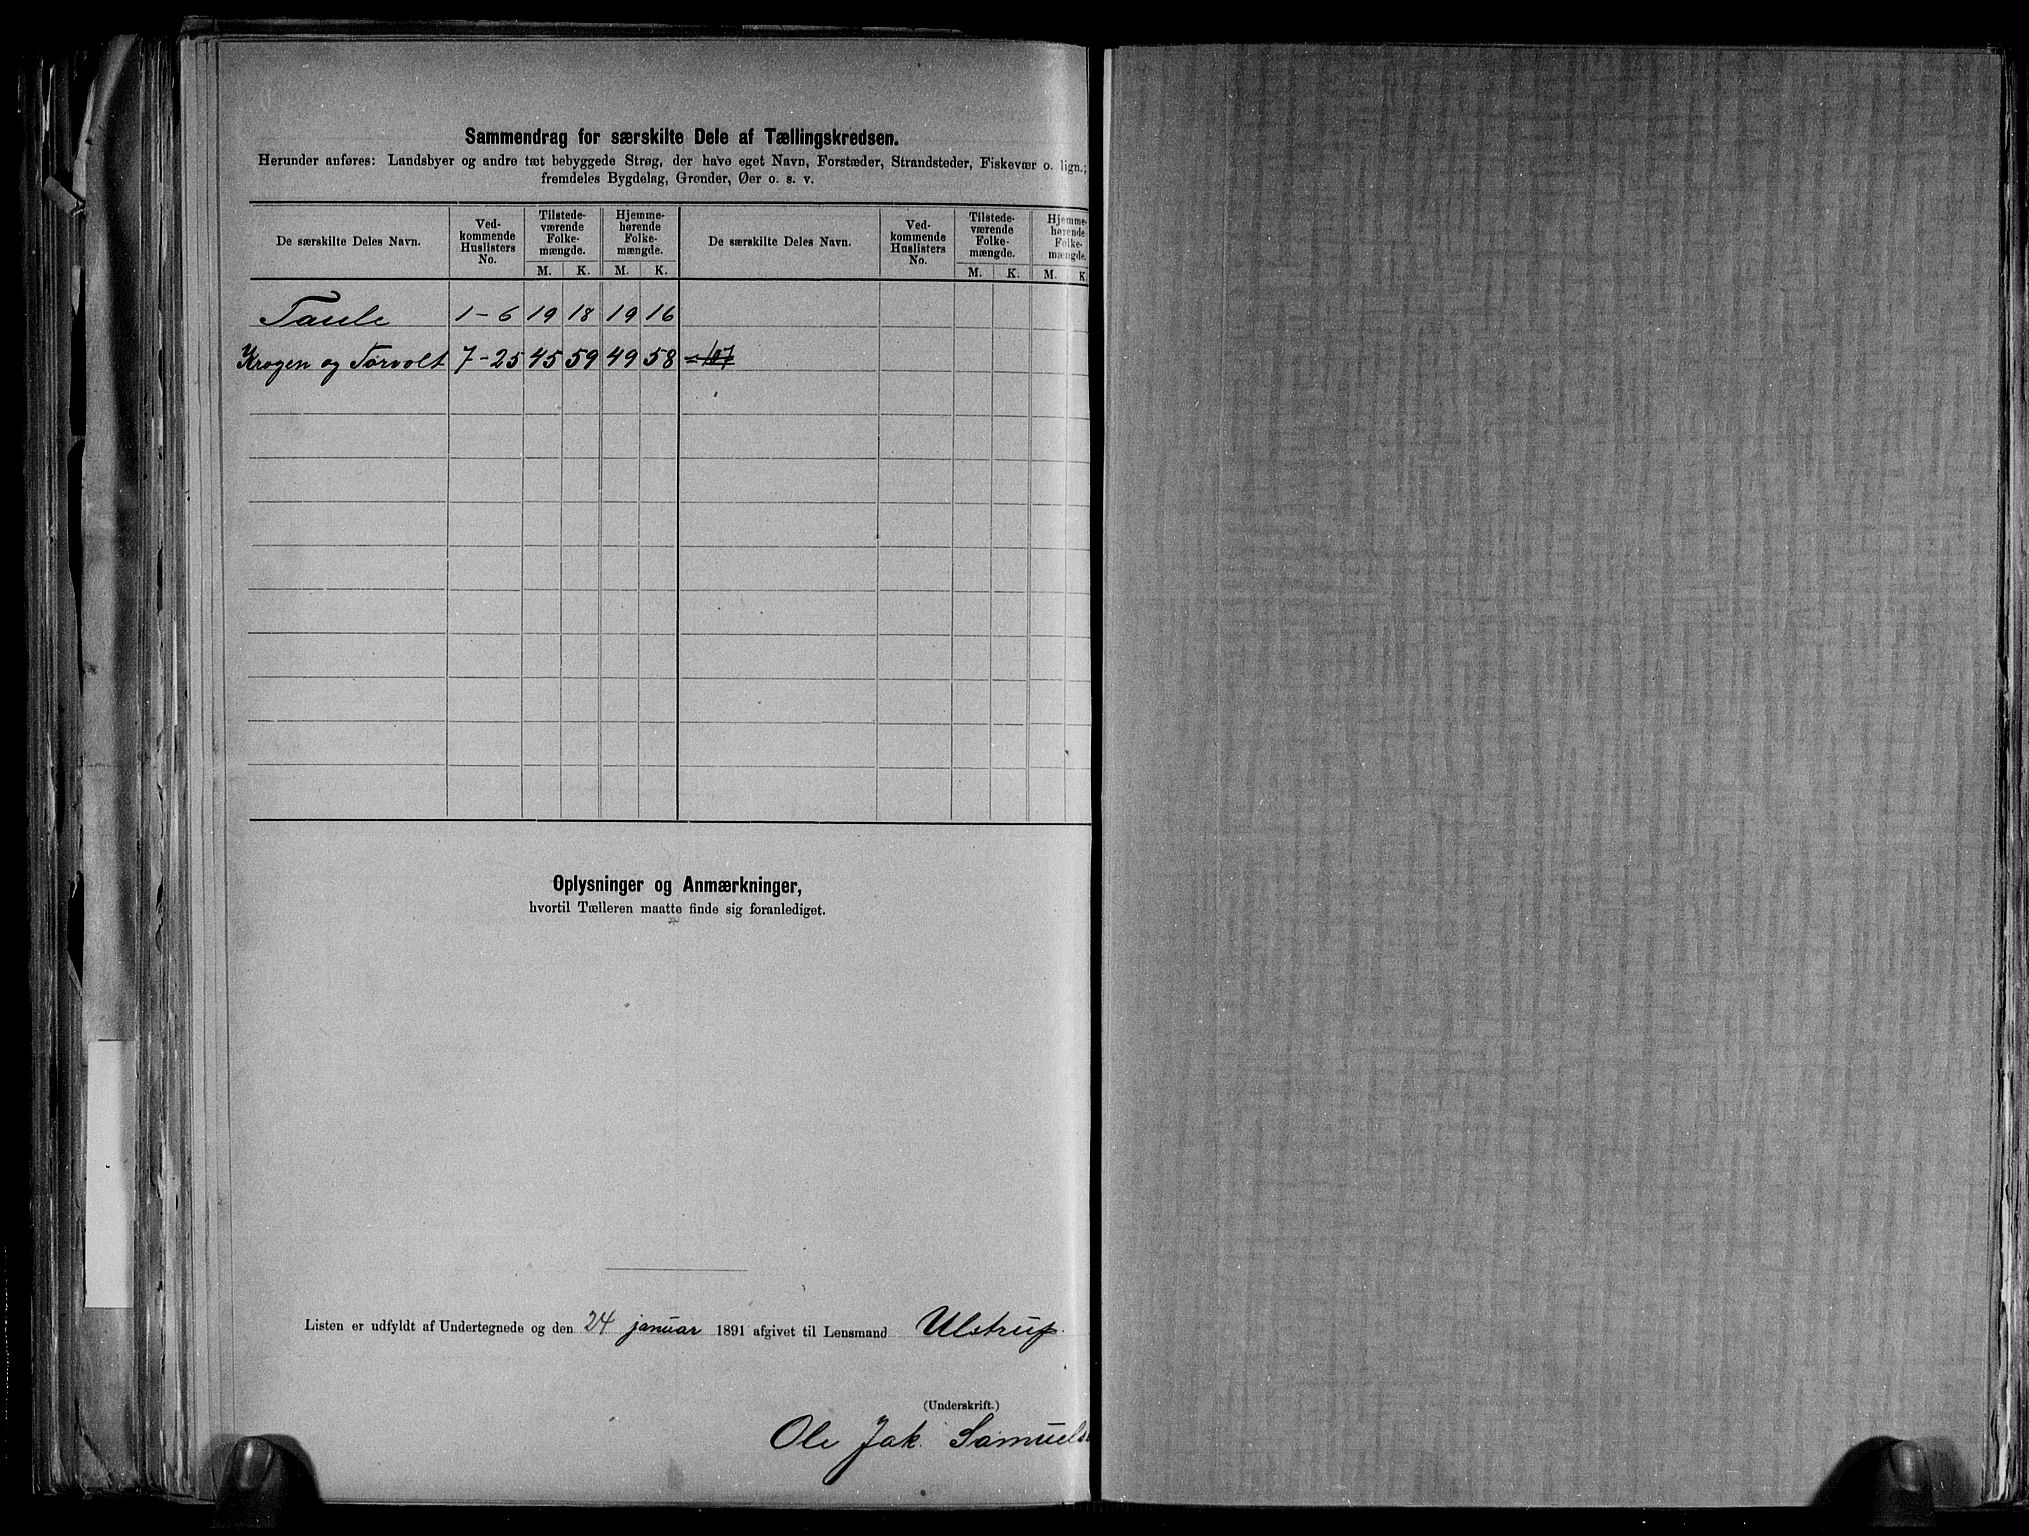 Sammendrag for særskilte Dele af Tællingskredsen.
Herunder anføres: Landsbyer og andre tæt bebyggede Strøg, der have eget Navn, Forstæder, Strandsteder, Fiskevær o. lign.;
fremdeles Bygdelag, Grender, Øer o. s. v.
De særskilte Deles Navn. Ved-kommende Huslisters No. Tilstede-værende Folke-mængde. Hjemme-hørende Folke-mængde. De særskilte Deles Navn. Ved-kommende Huslisters No. Tilstede-værende Folke-mængde. Hjemme-hørende Folke-mængde.
M. K. M. K. M. K. M. K.
Taule 1-6 19 18 19 16
Krogen og Torvolt 7-25 45 59 49 58 = 107
Oplysninger og Anmærkninger,
hvortil Tælleren maatte finde sig foranlediget.
Listen er udfyldt af Undertegnede og den 24 januar 1891 afgivet til Lensmand Ulstrup.
(Underskrift.)
Ole Jak. Samuels